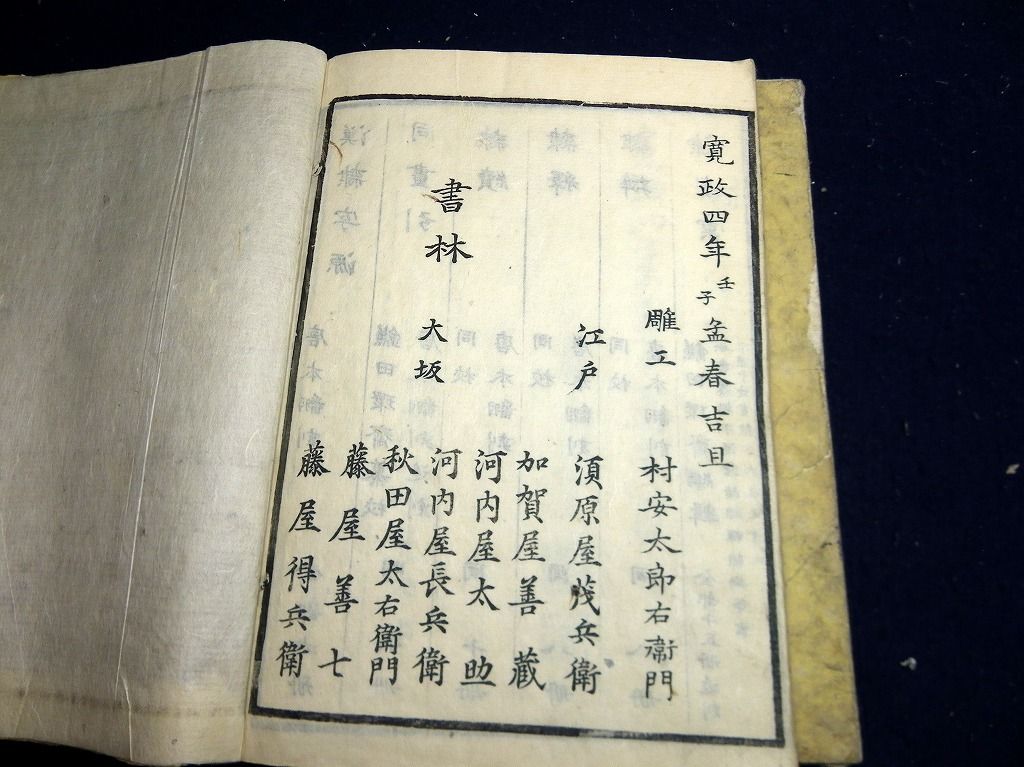 寛政四年壬子孟春吉旦
雕工 村安太郎右衛門
江戸 須原屋茂兵衛
書林 大坂
加賀屋善蔵
河内屋太助
河内屋長兵衛
秋田屋太右衛門
藤屋善七
藤屋得兵衛